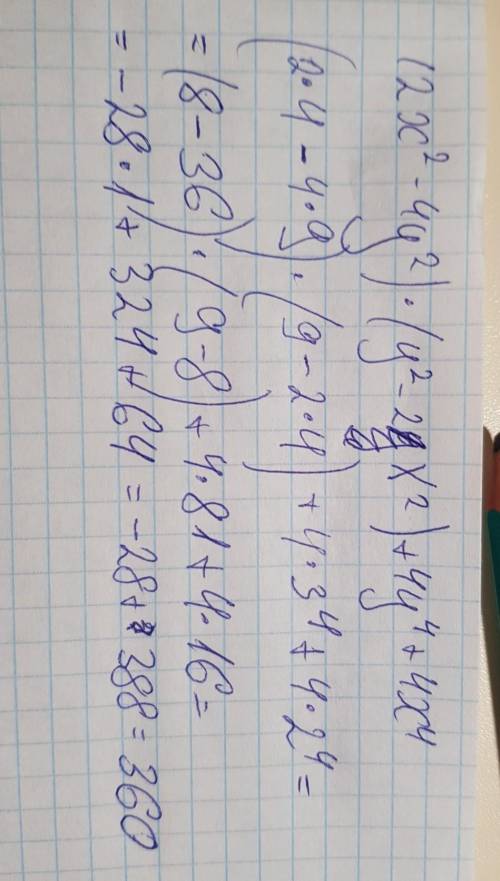 (2x² - 4y²) · (y² - 2x²) + 4y⁴ + 4x⁴
(2·4 - 4·9) · (9 - 2·4) + 4·3⁴ + 4·2⁴ =
= (8 - 36) · (9 - 8) + 4·81 + 4·16 =
= -28·1 + 324 + 64 = -28 + 388 = 360